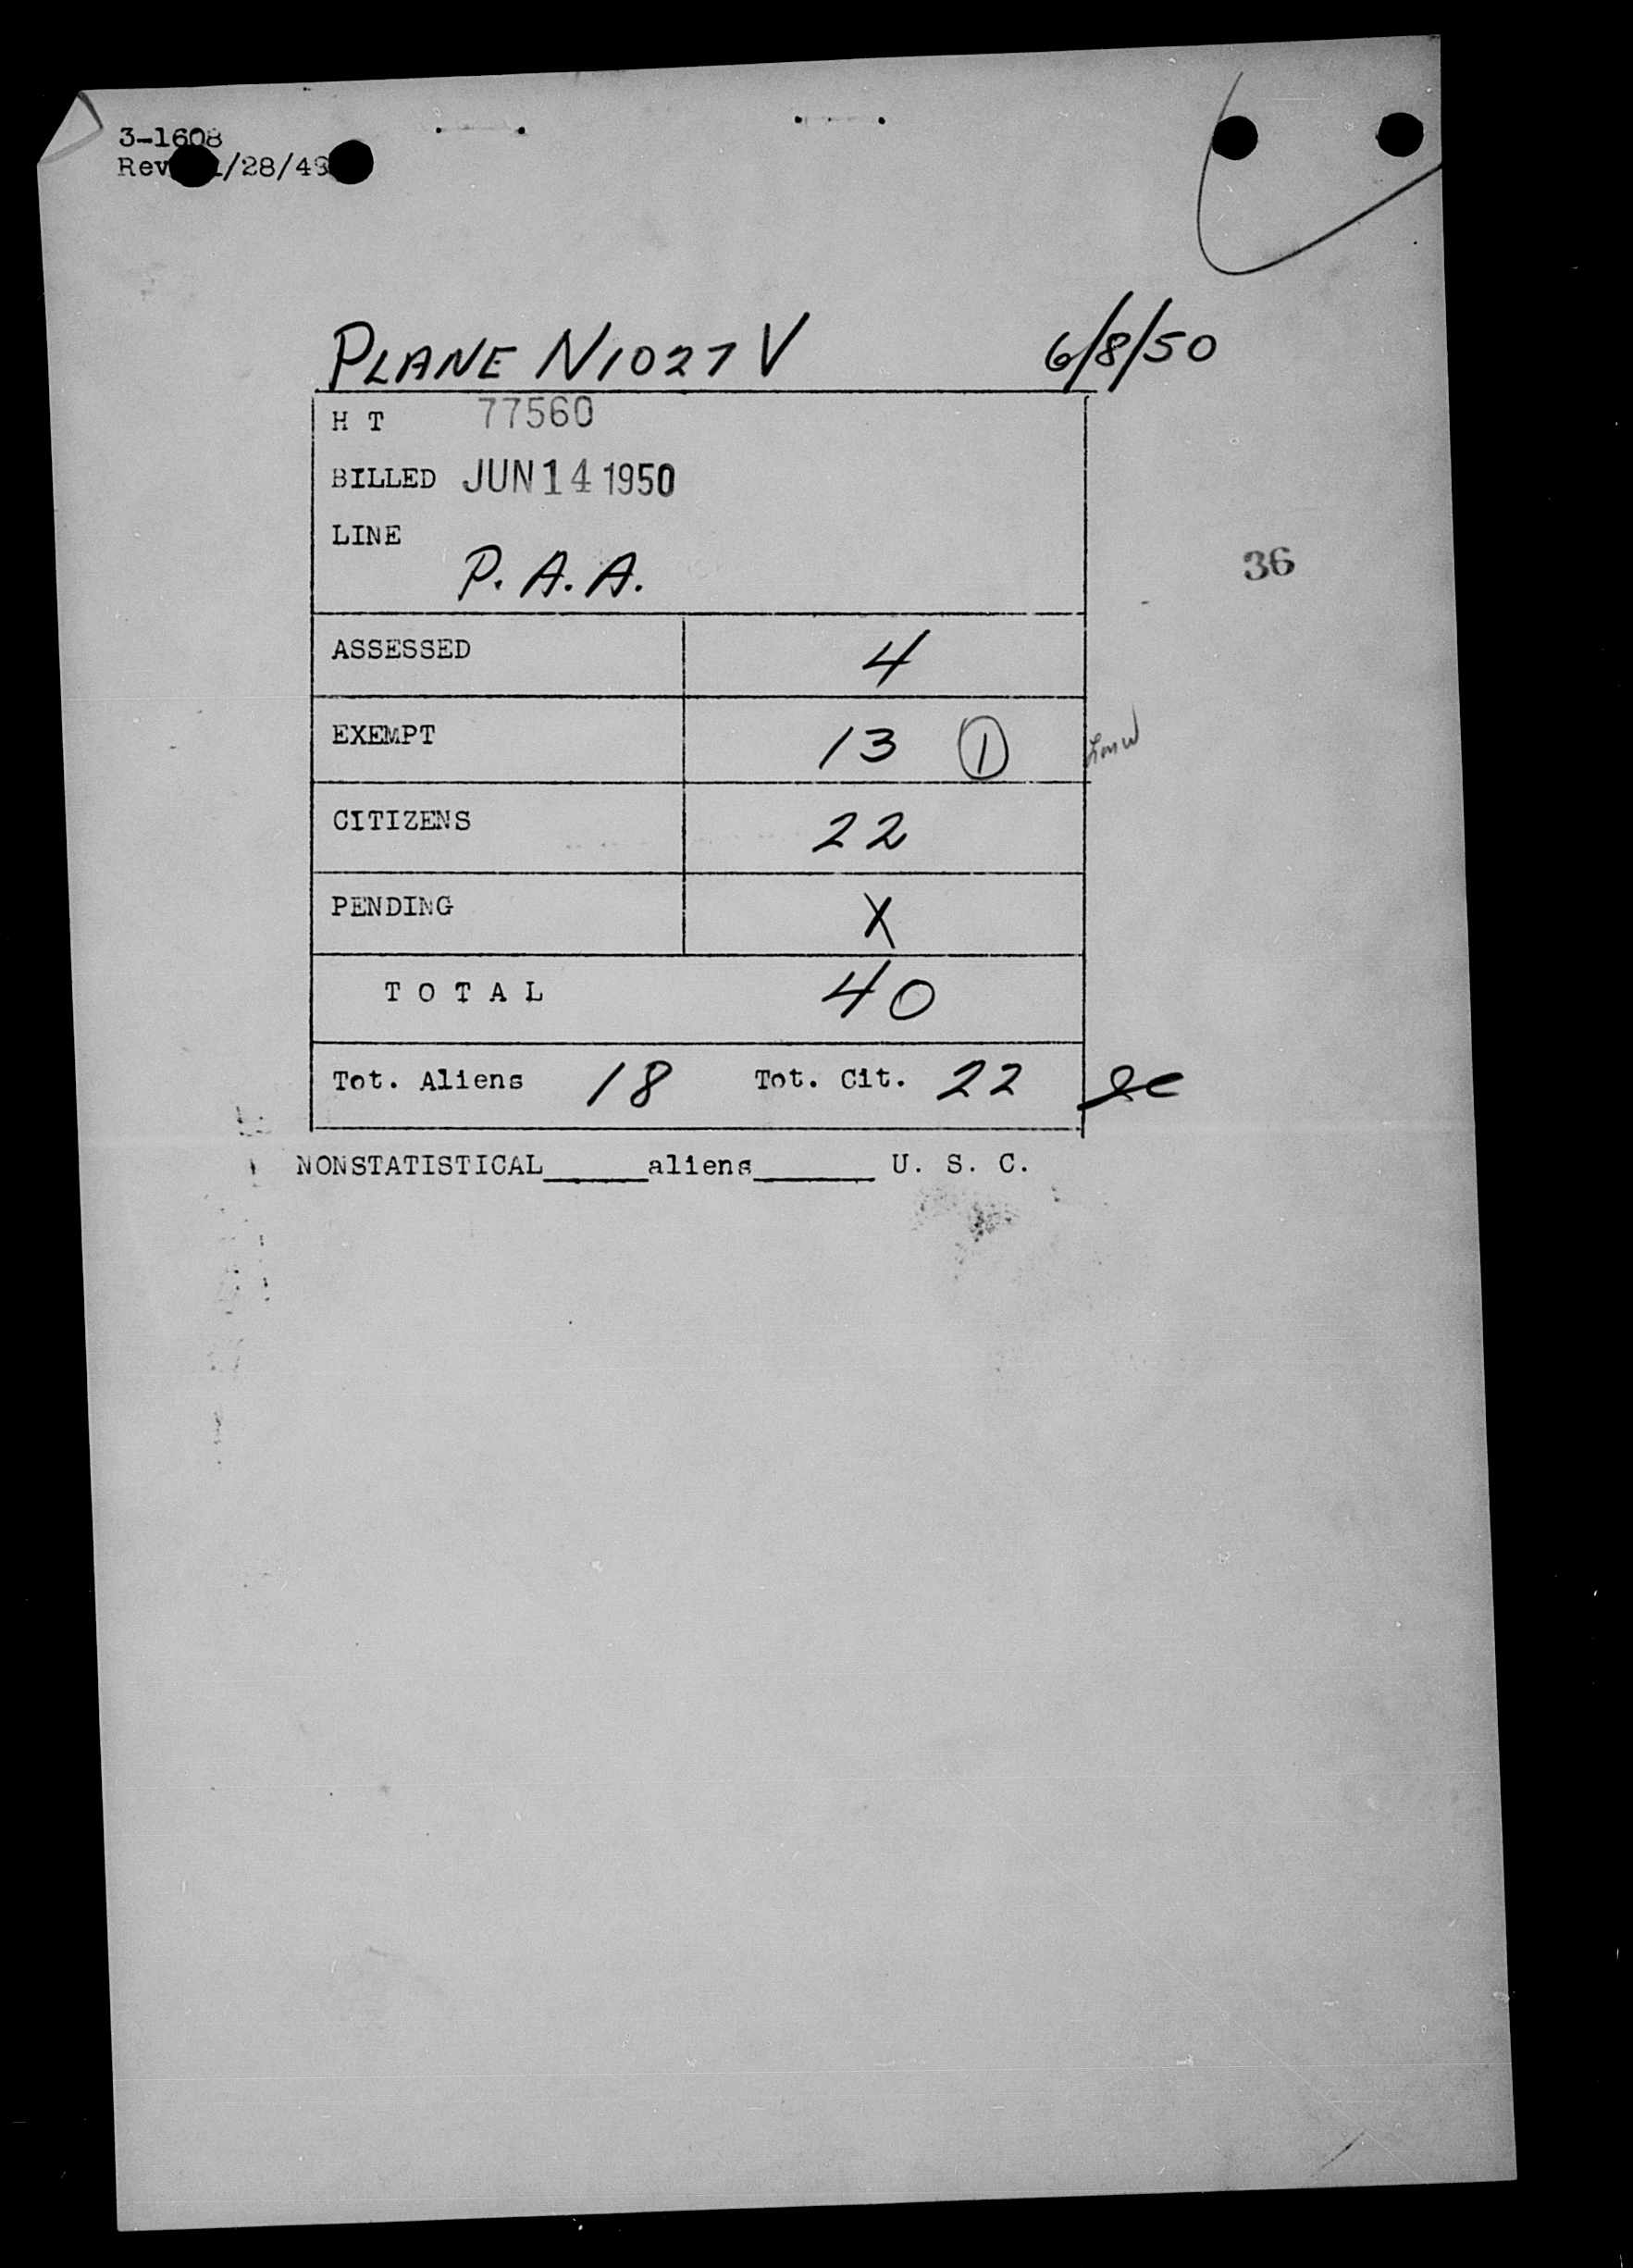 3-1608
Rev. 1/28/49
PLANE N1027V 6/8/50
H T 77560
BILLED JUN 14 1950
LINE
P. A. A.
36
ASSESSED 4
EXEMPT 13 1
CITIZENS 22
PENDING X
T O T A L 40
Tot. Aliens 18 Tot. Cit. 22
NONSTATISTICAL_____aliens______ U. S. C.